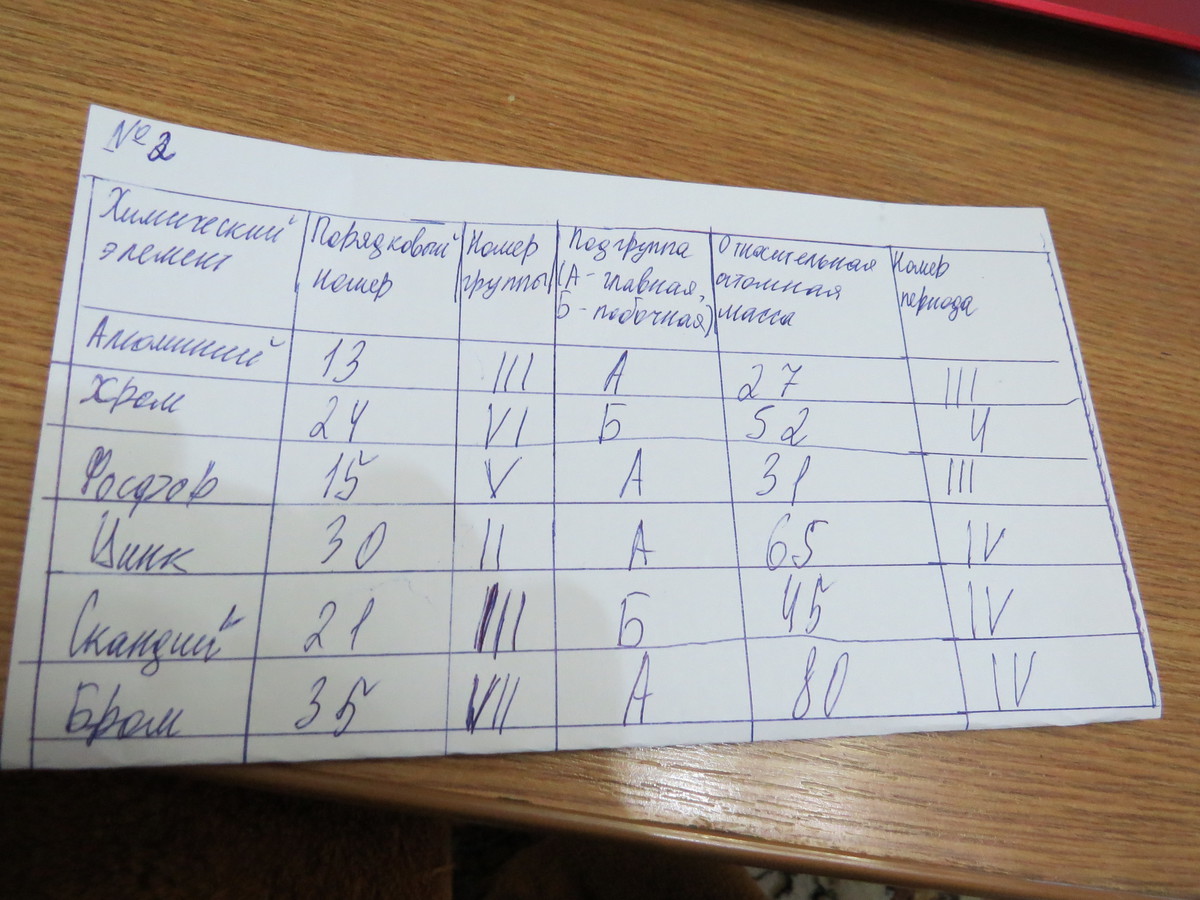 №2
Химический элемент | Порядковый номер | Номер группы | Подгруппа (А - главная, Б - побочная) | Относительная атомная масса | Номер периода
Алюминий | 13 | III | А | 27 | III
Хром | 24 | VI | Б | 52 | 4
Фосфор | 15 | V | А | 31 | III
Цинк | 30 | II | А | 65 | IV
Скандий | 21 | III | Б | 45 | IV
Бром | 35 | VII | А | 80 | IV